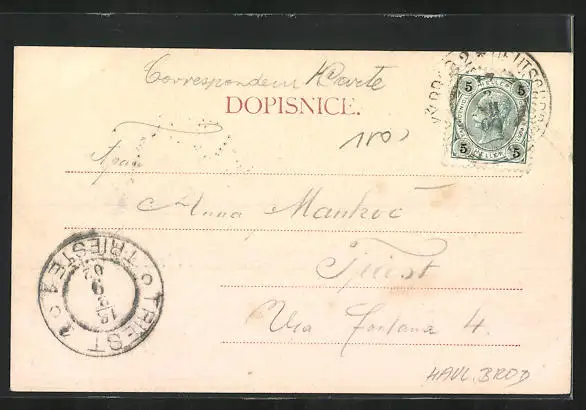 Correspondenz Karte
DOPISNICE.
5 5
5 5
Anna Mankoč
Triest
Via Fontana 4.
TRIEST 1 TRIESTE 1
02
HAVL. BROD